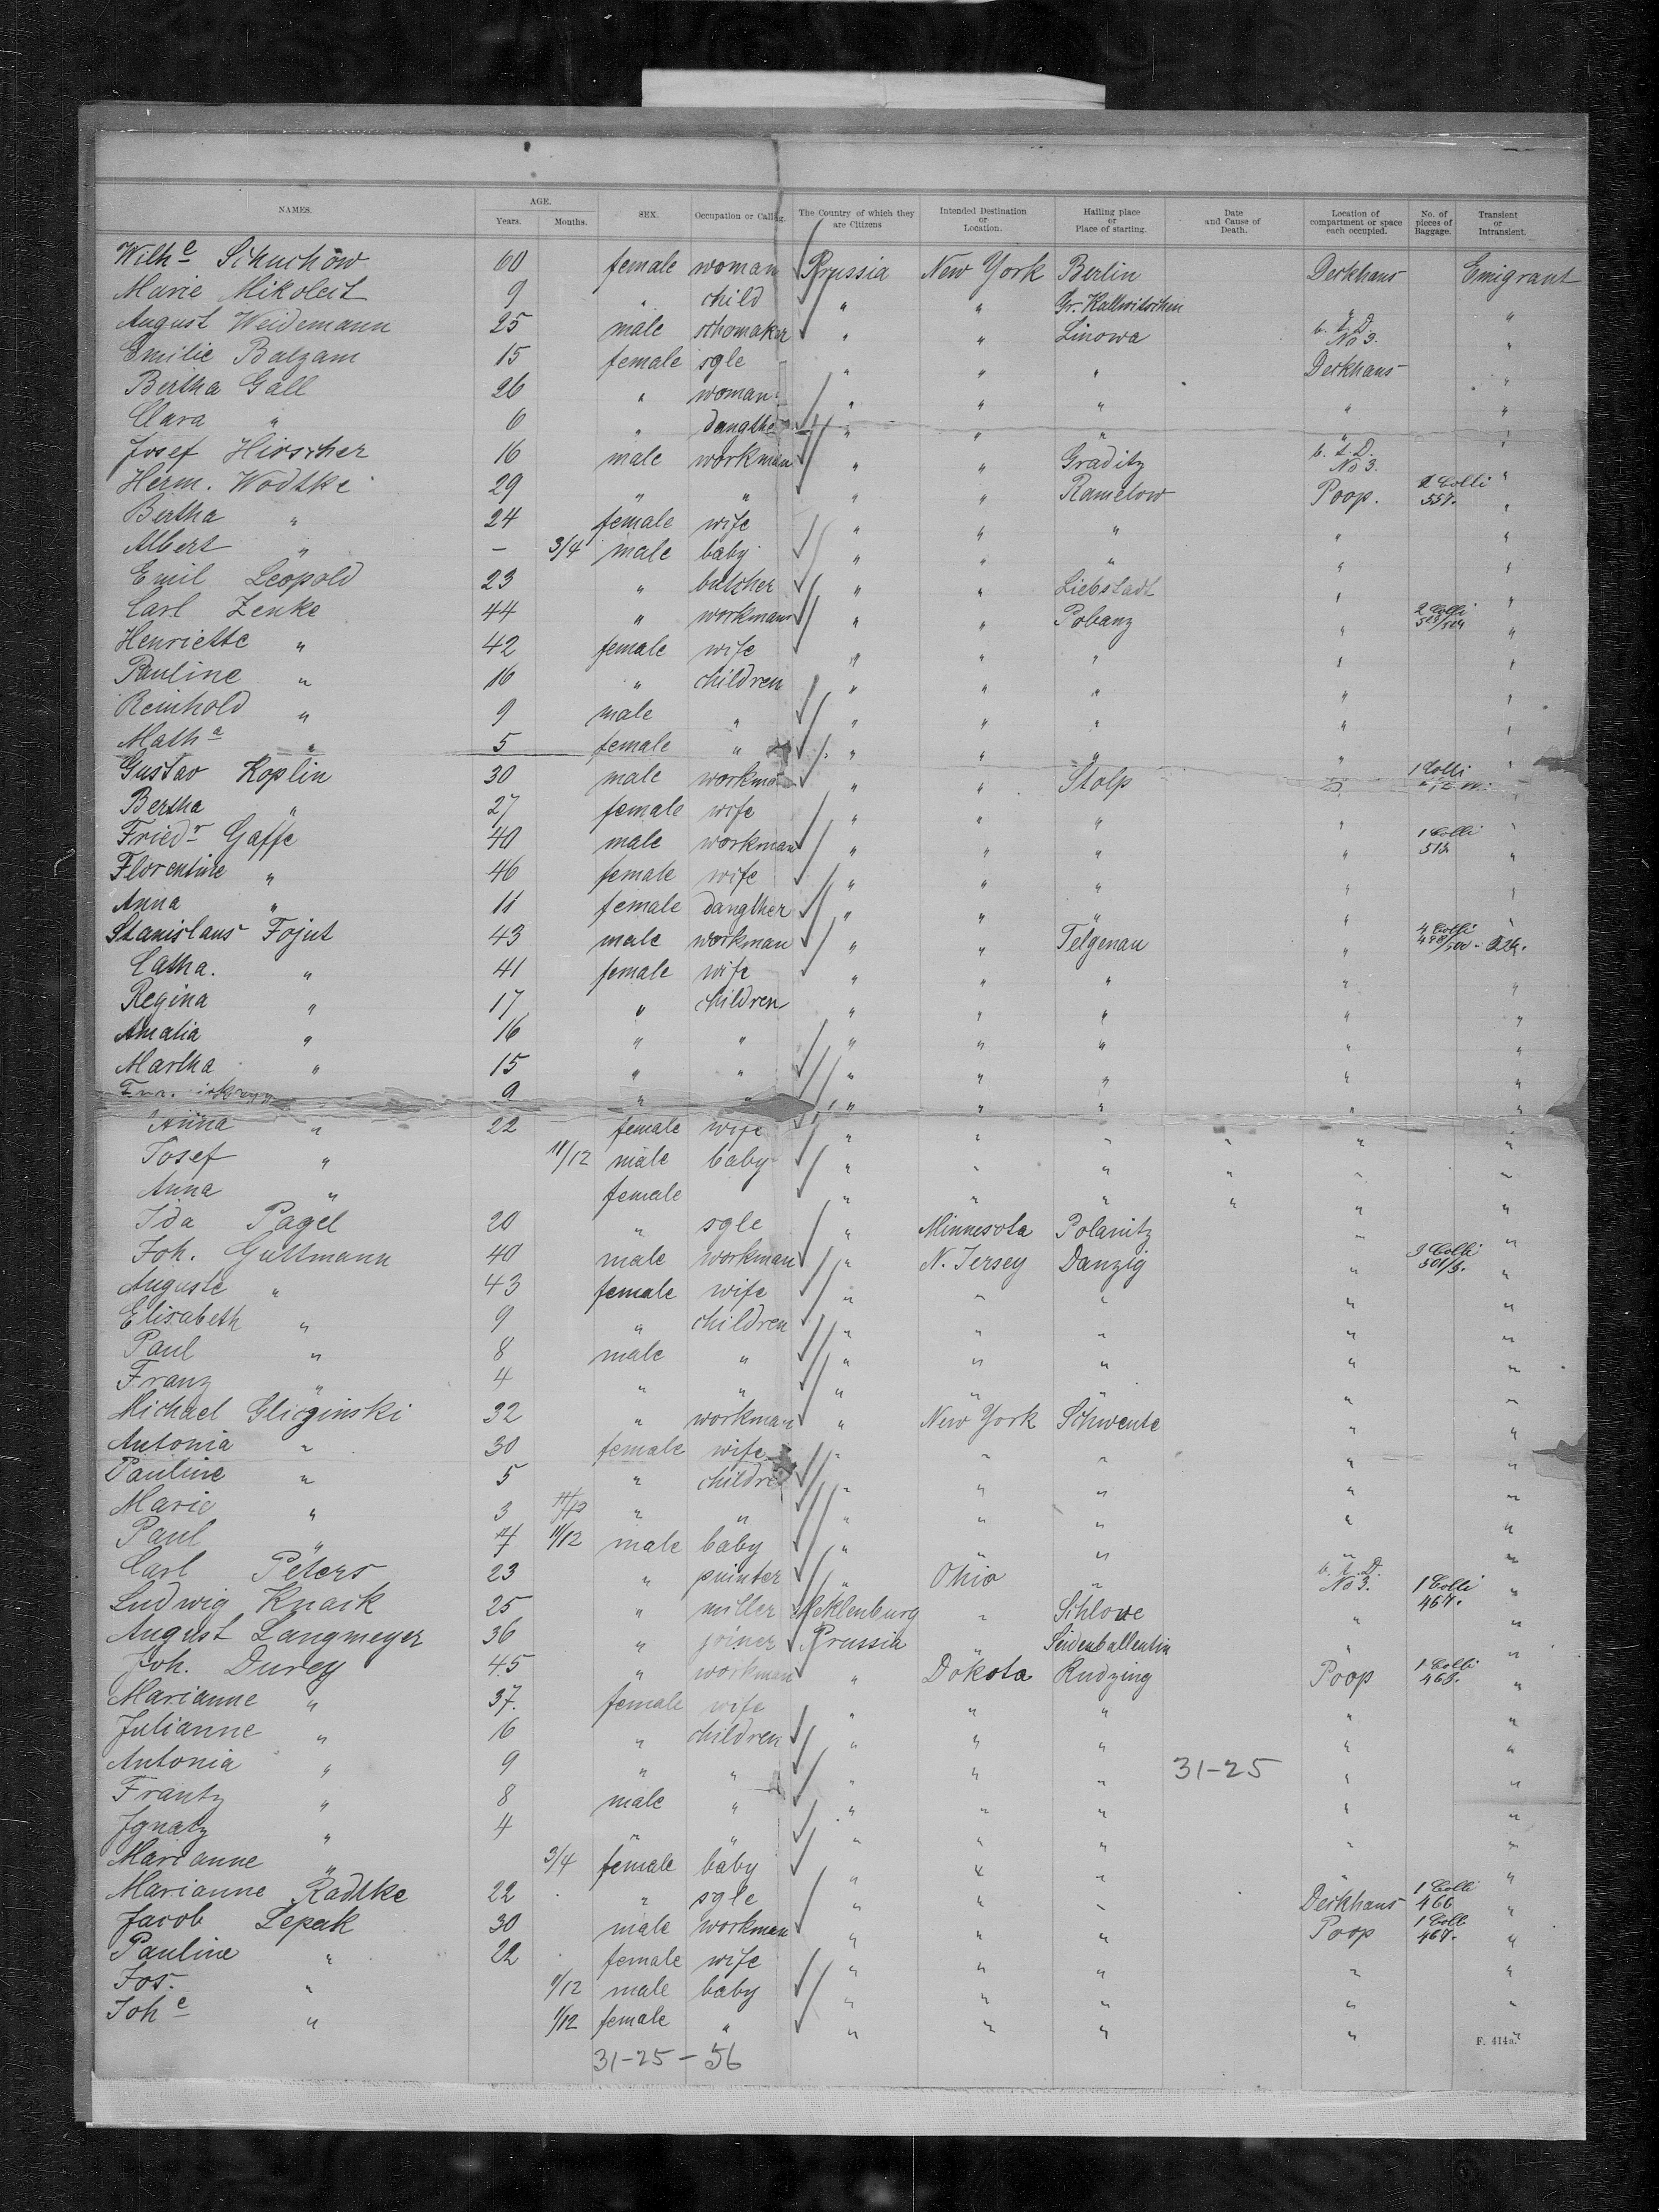 NAMES. AGE. Years. Months. SEX. Occupation or Calling. The Country of which they are Citizens Intended Destination or Location. Hailing place or Place of starting. Date and Cause of Death. Location of compartment or space each occupied. No. of pieces of Baggage. Transient or Intransient.
Wilhe Schuchow 60 female woman Prussia New York Berlin Deckhaus Emigrant
Marie Mikoleit 9 " child " " Gr. Kallwitschen " "
August Weidemann 25 male schomaker " " Linowa No 3. "
Emilie Balzam 15 female sgle " " " Deckhaus "
Bertha Gall 26 " woman " " " " "
Clara " 6 " dangther " " " " "
Josef Hirscher 16 male workman " " Graditz No 3. "
Herm. Wodtke 29 " " " " Ramelow Poop. 2 Colli 557. "
Bertha " 24 female wife " " " " "
Albert " - 3/4 male baby " " " " "
Emil Leopold 23 " butcher " " Liebstadt " "
Carl Zenke 44 " workman " " Pobanz " 2 Colli "
Henriette " 42 female wife " " " " "
Pauline " 16 " children " " " " "
Reinhold " 9 male " " " " " "
Matha " 5 female " " " " " "
Gustav Koplin 30 male workman " " Stolp " 1 Colli "
Bertha " 27 female wife " " " " "
Friedr Gaffe 40 male workman " " " " 1 Colli 513 "
Florentine " 46 female wife " " " " "
Anna " 11 female dangther " " " " "
Stanislaus Fojut 43 male workman " " Telgenau " 4 Colli
Catha. " 41 female wife " " " " "
Regina " 17 " children " " " " "
Amalia " 16 " " " " " " "
Martha " 15 " " " " " " "
9 " " " " " " "
Anna " 22 female wife " " " " " "
Josef " 11/12 male baby " " " " " "
Anna " female " " " " " "
Ida Pagel 20 " sgle " Minnesota Polanitz " "
Joh. Guttmann 40 male workman " N. Jersey Danzig " 3 Colli 501/3. "
Auguste " 43 female wife " " " " "
Elisabeth " 9 " children " " " " "
Paul " 8 male " " " " " "
Franz " 4 " " " " " " "
Michael Gliczinski 32 " workman " New York Schwente " "
Antonia " 30 female wife " " " " "
Pauline " 5 " children " " " " "
Marie " 3 " " " " " " "
Paul " 11/12 male baby " " " " "
Carl Peters 23 " puinter " Ohio " No 3. 1 Colli 467. "
Ludwig Knaik 25 " miller Meklenburg " Schlowe " "
August Langmeyer 36 " joiner Prussia " Seidenballentin " "
Joh. Durey 45 " workman " Dokota Rudzing Poop 1 Colli 468. "
Marianne " 37. female wife " " " " "
Julianne " 16 " children " " " " "
Antonia " 9 " " " " " 31-25 " "
Frantz " 8 male " " " " " "
Ignatz " 4 " " " " " " "
Marianne " 3/4 female baby " " " " "
Marianne Radtke 22 " sgle " " " Deckhaus 1 Colli 466 "
Jacob Lepak 30 male workman " " " Poop 1 Coll 467. "
Pauline " 22 female wife " " " " "
Jos. " 1/12 male baby " " " " "
Johe " 1/12 female " " " " " "
31-25-56
F. 414a.